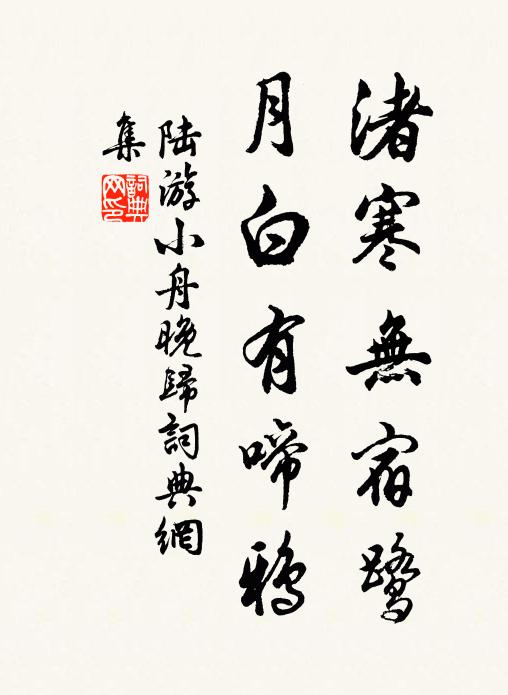 渚寒無宿鷺
月白有啼鴉
陸游小舟晚歸詞典網
集
詞典
网印